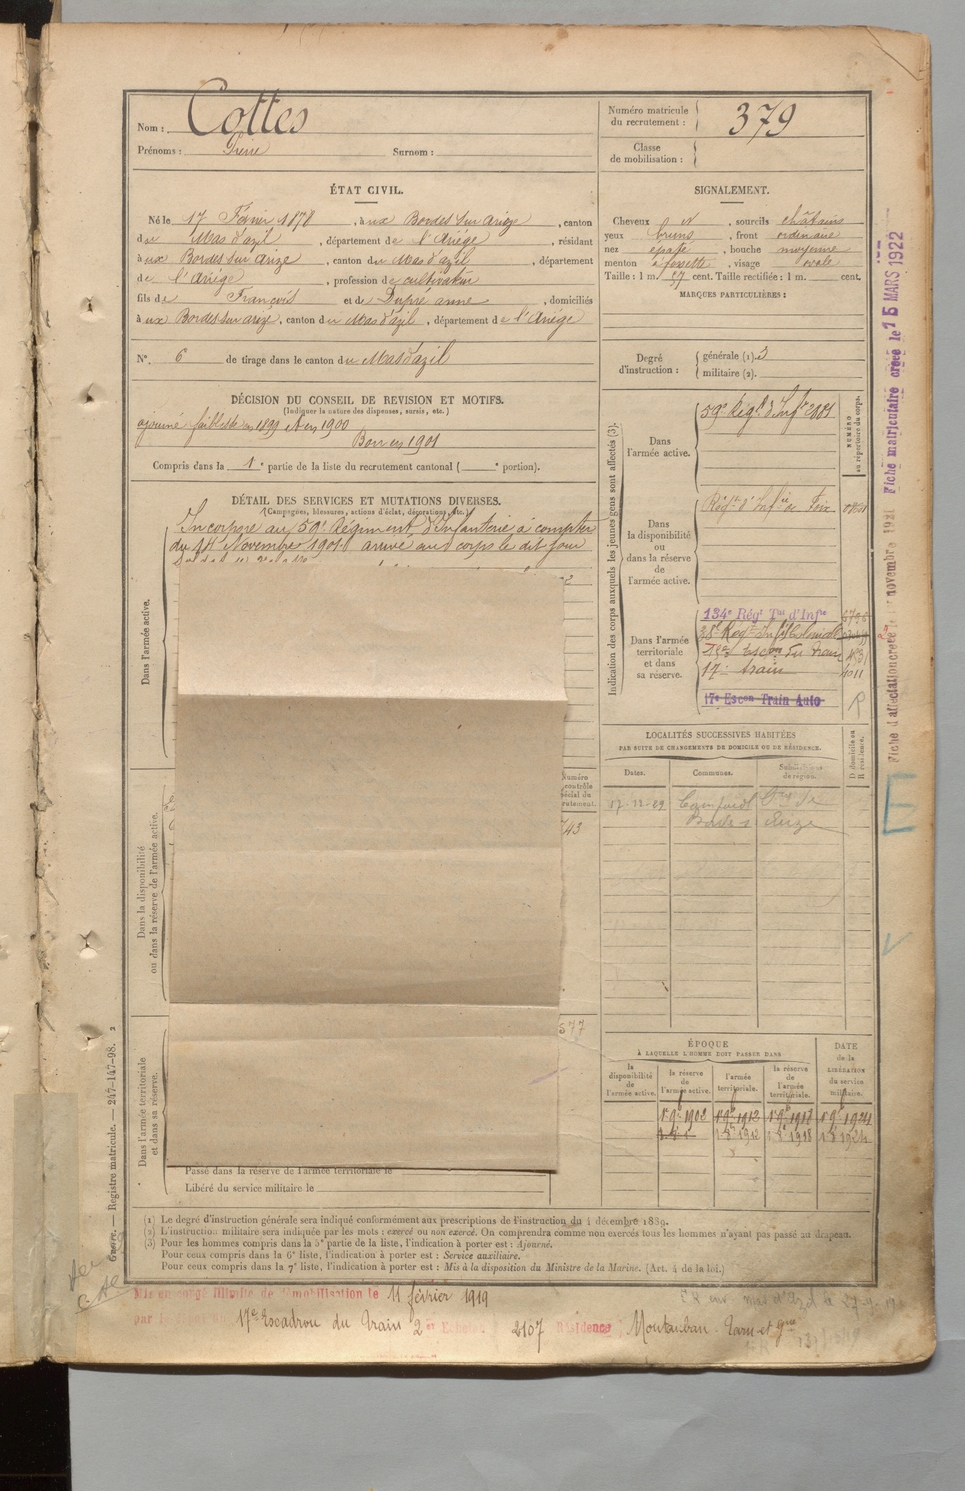 Nom : Cottes
Prénoms : Pierre Surnom :
Numéro matricule du recrutement : 379
Classe de mobilisation :
ÉTAT CIVIL.
Né le 17 Février 1878, à ux Bordes sur Arize, canton
de Mas d'azil, département de l'Ariége, résidant
à ux Bordes sur Arize, canton du Mas d'azil, département
de l'Ariége, profession de cultivateur
fils de François et de Dupré anne, domiciliés
à ux Bordes sur arize, canton du Mas d'azil, département de l'Ariége
N°. 6 de tirage dans le canton du Mas d'azil
SIGNALEMENT.
Cheveux et, sourcils châtains
yeux bruns, front ordinaire
nez epaté, bouche moyenne
menton à fossette, visage ovale
Taille : 1 m. 57 cent. Taille rectifiée : 1 m. cent.
MARQUES PARTICULIÈRES :
Degré d'instruction : générale (1). 3
militaire (2).
DÉCISION DU CONSEIL DE REVISION ET MOTIFS.
(Indiquer la nature des dispenses, sursis, etc.)
ajourné faiblesse en 1899 et en 1900
Bon en 1901
Compris dans la 1e partie de la liste du recrutement cantonal ( e portion).
DÉTAIL DES SERVICES ET MUTATIONS DIVERSES.
(Campagnes, blessures, actions d'éclat, décorations, etc.)
Incorporé au 59e Régiment d'Infanterie à compter
du 14 Novembre 1901 arrivé au corps le dit jour
Dans l'armée active.
Dans la disponibilité ou dans la réserve de l'armée active.
Dans l'armée territoriale et dans sa réserve.
Numéro
contrôle
spécial du
recrutement.
743
577
Passé dans la réserve de l'armée territoriale le
Libéré du service militaire le
Indication des corps auxquels les jeunes gens sont affectés (3).
NUMÉRO au répertoire du corps.
Dans l'armée active.
59e Régt d'Infie
Dans la disponibilité ou dans la réserve de l'armée active.
Régt d'Infie de Foix
Dans l'armée territoriale et dans sa réserve.
134e Régt Tal d'Infie
38e Regt Infie Coloniale
Escon du train
17e train
17e Escon Train Auto
R
LOCALITÉS SUCCESSIVES HABITÉES
PAR SUITE DE CHANGEMENTS DE DOMICILE OU DE RÉSIDENCE.
Dates. Communes. Subdivisions de région. D domicile ou R résidence.
17-11-29
ÉPOQUE
À LAQUELLE L'HOMME DOIT PASSER DANS
la disponibilité de l'armée active.
la réserve de l'armée active.
l'armée territoriale.
la réserve de l'armée territoriale.
DATE de la LIBÉRATION du service militaire.
1r 9bre 1902 1r 9bre 1912 1r 9bre 1918 1r 9bre 1924
(1) Le degré d'instruction générale sera indiqué conformément aux prescriptions de l'instruction du 4 décembre 1889.
(2) L'instruction militaire sera indiquée par les mots : exercé ou non exercé. On comprendra comme non exercés tous les hommes n'ayant pas passé au drapeau.
(3) Pour les hommes compris dans la 5e partie de la liste, l'indication à porter est : Ajourné.
Pour ceux compris dans la 6e liste, l'indication à porter est : Service auxiliaire.
Pour ceux compris dans la 7e liste, l'indication à porter est : Mis à la disposition du Ministre de la Marine. (Art. 4 de la loi.)
Mis en congé illimité de démobilisation le 11 février 1919
par le 17e Escadron du Train 2e 2107 Résidence Montauban Tarn et Gne
Guerre. — Registre matricule. — 247-147-98.
Fiche d'affectation créée le novembre 1921 Fiche matriculaire créée le 15 MARS 1922